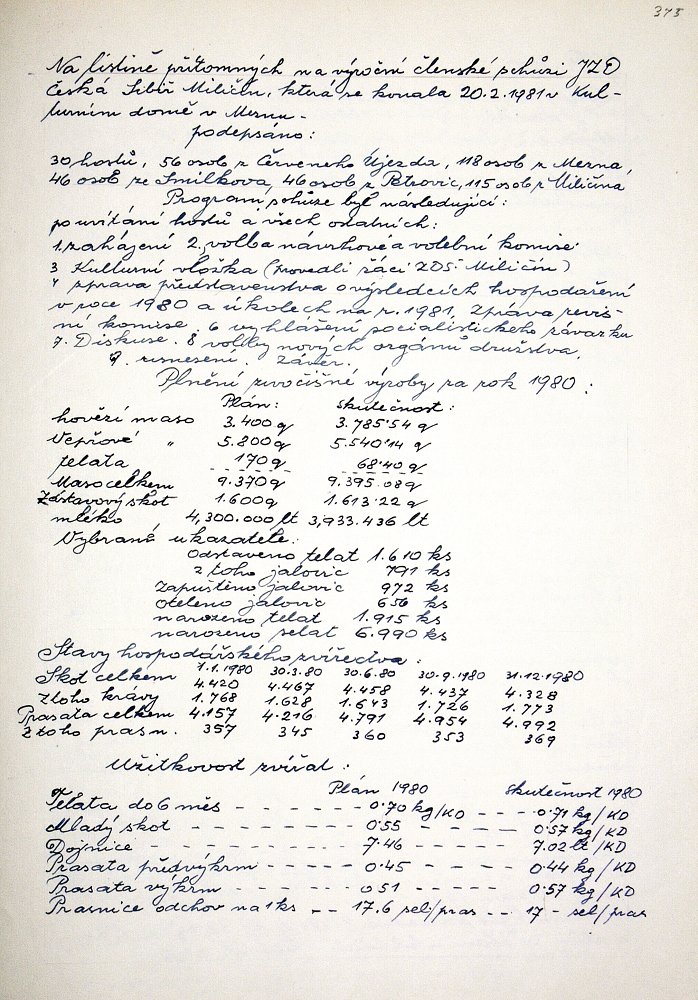 373
Na listině přítomných na výroční členské schůzi JZD
Česká Sibiř Miličín, která se konala 20.2.1981 v Kul-
turním domě v Mezně -
podepsáno:
30 hostů, 56 osob z Červeneho Újezda, 118 osob z Mezna,
46 osob ze Smilkova, 46 osob z Petrovic, 115 osob z Miličína
Program schůze byl následující:
po uvítání hostů a všech ostatních:
1. zahájení 2. volba návrhové a volební komise
3 Kulturní vložka (provedli žáci ZDŠ - Miličín)
4 zpráva představenstva o výsledcích hospodaření
v roce 1980 a úkolech na r. 1981, Zpráva reviz-
ní komise. 6 vyhlášení socialistického závazku
7. Diskuse. 8 volby nových orgánů družstva,
9. usnesení. závěr.
Plnění živočišné výroby za rok 1980:
Plán: skutečnost:
hovězí maso 3.400 q 3.785·54 q
Vepřové " 5.800 q 5.540·14 q
telata 170 q 68·40 q
Maso celkem 9.370 q 9.395.08 q
Zástavový skot 1.600 q 1.613·22 q
mléko 4,300.000 lt 3,933.436 lt
Vybrané ukazatele:
Odstaveno telat 1.610 ks
z toho jalovic 791 ks
Zapuštěno jalovic 972 ks
oteleno jalovic 656 ks
narozeno telat 1.915 ks
narozeno selat 6.990 ks
Stavy hospodářského zvířectva:
1.1.1980 30.3.80 30.6.80 30.9.1980 31.12.1980
Skot celkem 4.420 4.467 4.458 4.437 4.328
Z toho krávy 1.768 1.628 1.643 1.726 1.773
Prasata celkem 4.157 4.216 4.791 4.954 4.992
Z toho prasn. 357 345 360 353 369
Užitkovost zvířat:
Plán 1980 skutečnost 1980
Telata do 6 měs - - - - - 0·70 kg/KD - - 0·71 kg/KD
Mladý skot - - - - - 0·55 - - - - - 0·57 kg/KD
Dojnice - - - - - 7·46 - - - - - 7.02 lt/KD
Prasata předvýkrm - - - - - 0·45 - - - - - 0·44 kg/KD
Prasata výkrm - - - - - 0 51 - - - - - 0·57 kg/KD
Prasnice odchov na 1 ks - - 17.6 sel/pras - - 17 - sel/pras